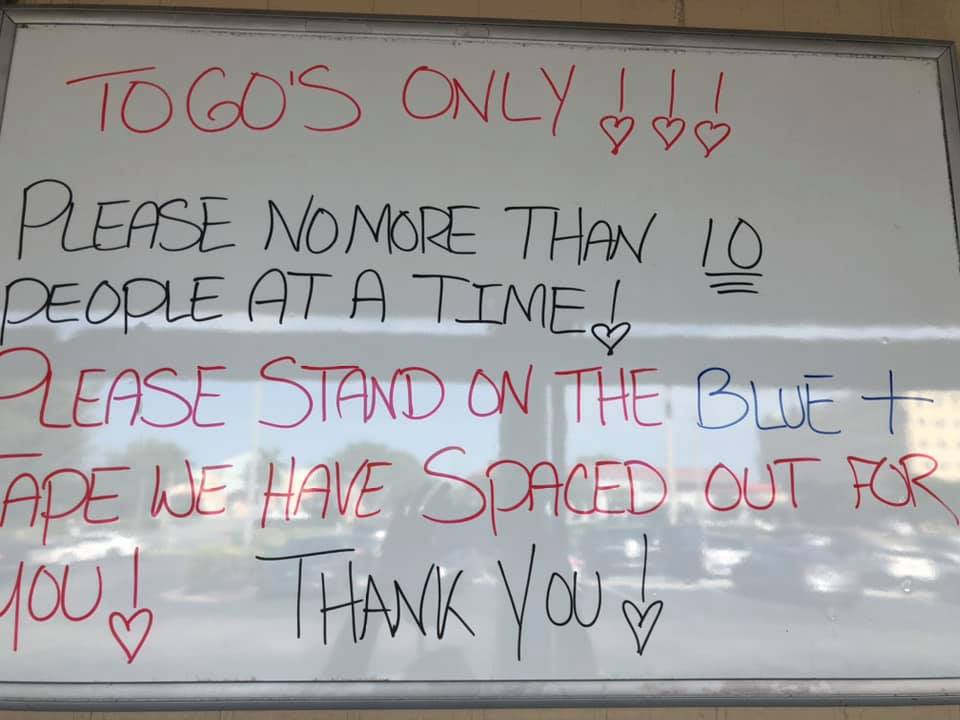 TO GO'S ONLY!!!
PLEASE NO MORE THAN 10
PEOPLE AT A TIME!
PLEASE STAND ON THE BLUE +
TAPE WE HAVE SPACED OUT FOR
YOU! THANK YOU!